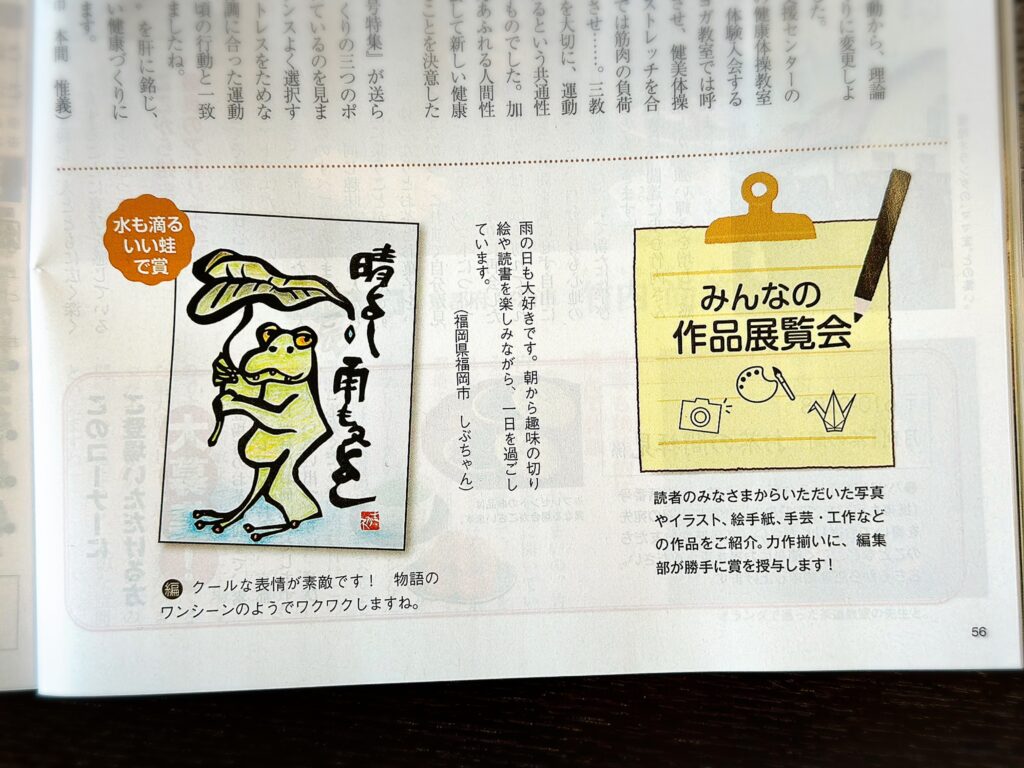 動から、理論
りに変更しよ
た。
援センターの
健康体操教室
体験入会する
ヨガ教室では呼
させ、健美体操
ストレッチを合
では筋肉の負荷
させ……。三教
を大切に、運動
るという共通性
ものでした。加
あふれる人間性
して新しい健康
ことを決意した
号特集』が送ら
くりの三つのポ
ているのを見ま
ンスよく選択す
トレスをためな
調に合った運動
頃の行動と一致
ましたね。
を肝に銘じ、
い健康づくりに
ます。
市 本間 惟義)
みんなの
作品展覧会
読者のみなさまからいただいた写真
やイラスト、絵手紙、手芸・工作など
の作品をご紹介。力作揃いに、編集
部が勝手に賞を授与します!
雨の日も大好きです。朝から趣味の切り
絵や読書を楽しみながら、一日を過ごし
ています。
(福岡県福岡市 しぶちゃん)
水も滴る
いい蛙
で賞
晴よし
雨もまたよし
編 クールな表情が素敵です! 物語の
ワンシーンのようでワクワクしますね。
56